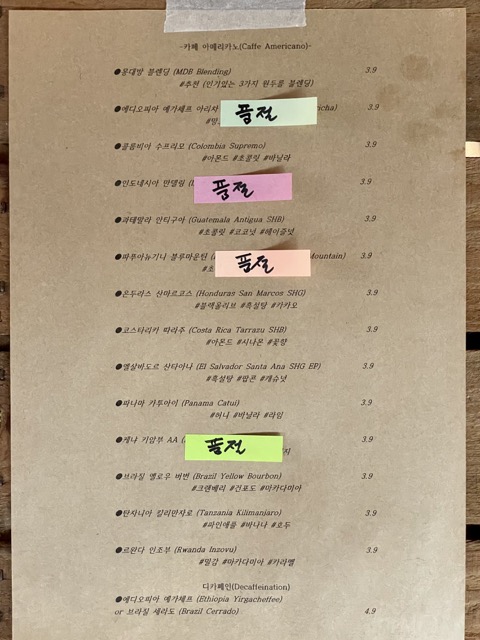 -카페 아메리카노(Caffe Americano)-
●몽대방 블렌딩 (MDB Blending) 3.9
#추천 (인기있는 3가지 원두를 블렌딩)
●에디오피아 예가체프 아리차 품절 cha) 3.9
●콜롬비아 수프리모 (Colombia Supremo) 3.9
#아몬드 #초콜릿 #바닐라
●인도네시아 만델링 ( 품절 3.9
●과테말라 안티구아 (Guatemala Antigua SHB) 3.9
#초콜릿 #코코넛 #헤이즐넛
●파푸아뉴기니 블루마운틴 ( Mountain) 3.9
#초 품절
●온두라스 산마르코스 (Honduras San Marcos SHG) 3.9
#블랙올리브 #흑설탕 #카카오
●코스타리카 따라주 (Costa Rica Tarrazu SHB) 3.9
#아몬드 #시나몬 #꽃향
●엘살바도르 산타아나 (El Salvador Santa Ana SHG EP) 3.9
#흑설탕 #팝콘 #캐슈넛
●파나마 카투아이 (Panama Catui) 3.9
#허니 #바닐라 #라임
●케냐 키암부 AA ( 품절 3.9
지
●브라질 옐로우 버번 (Brazil Yellow Bourbon) 3.9
#크랜베리 #건포도 #마카다미아
●탄자니아 킬리만자로 (Tanzania Kilimanjaro) 3.9
#파인애플 #바나나 #호두
●르완다 인조부 (Rwanda Inzovu) 3.9
#밀감 #마카다미아 #카라멜
디카페인(Decaffeination)
●에디오피아 예가체프 (Ethiopia Yirgacheffee)
or 브라질 세라도 (Brazil Cerrado) 4.9